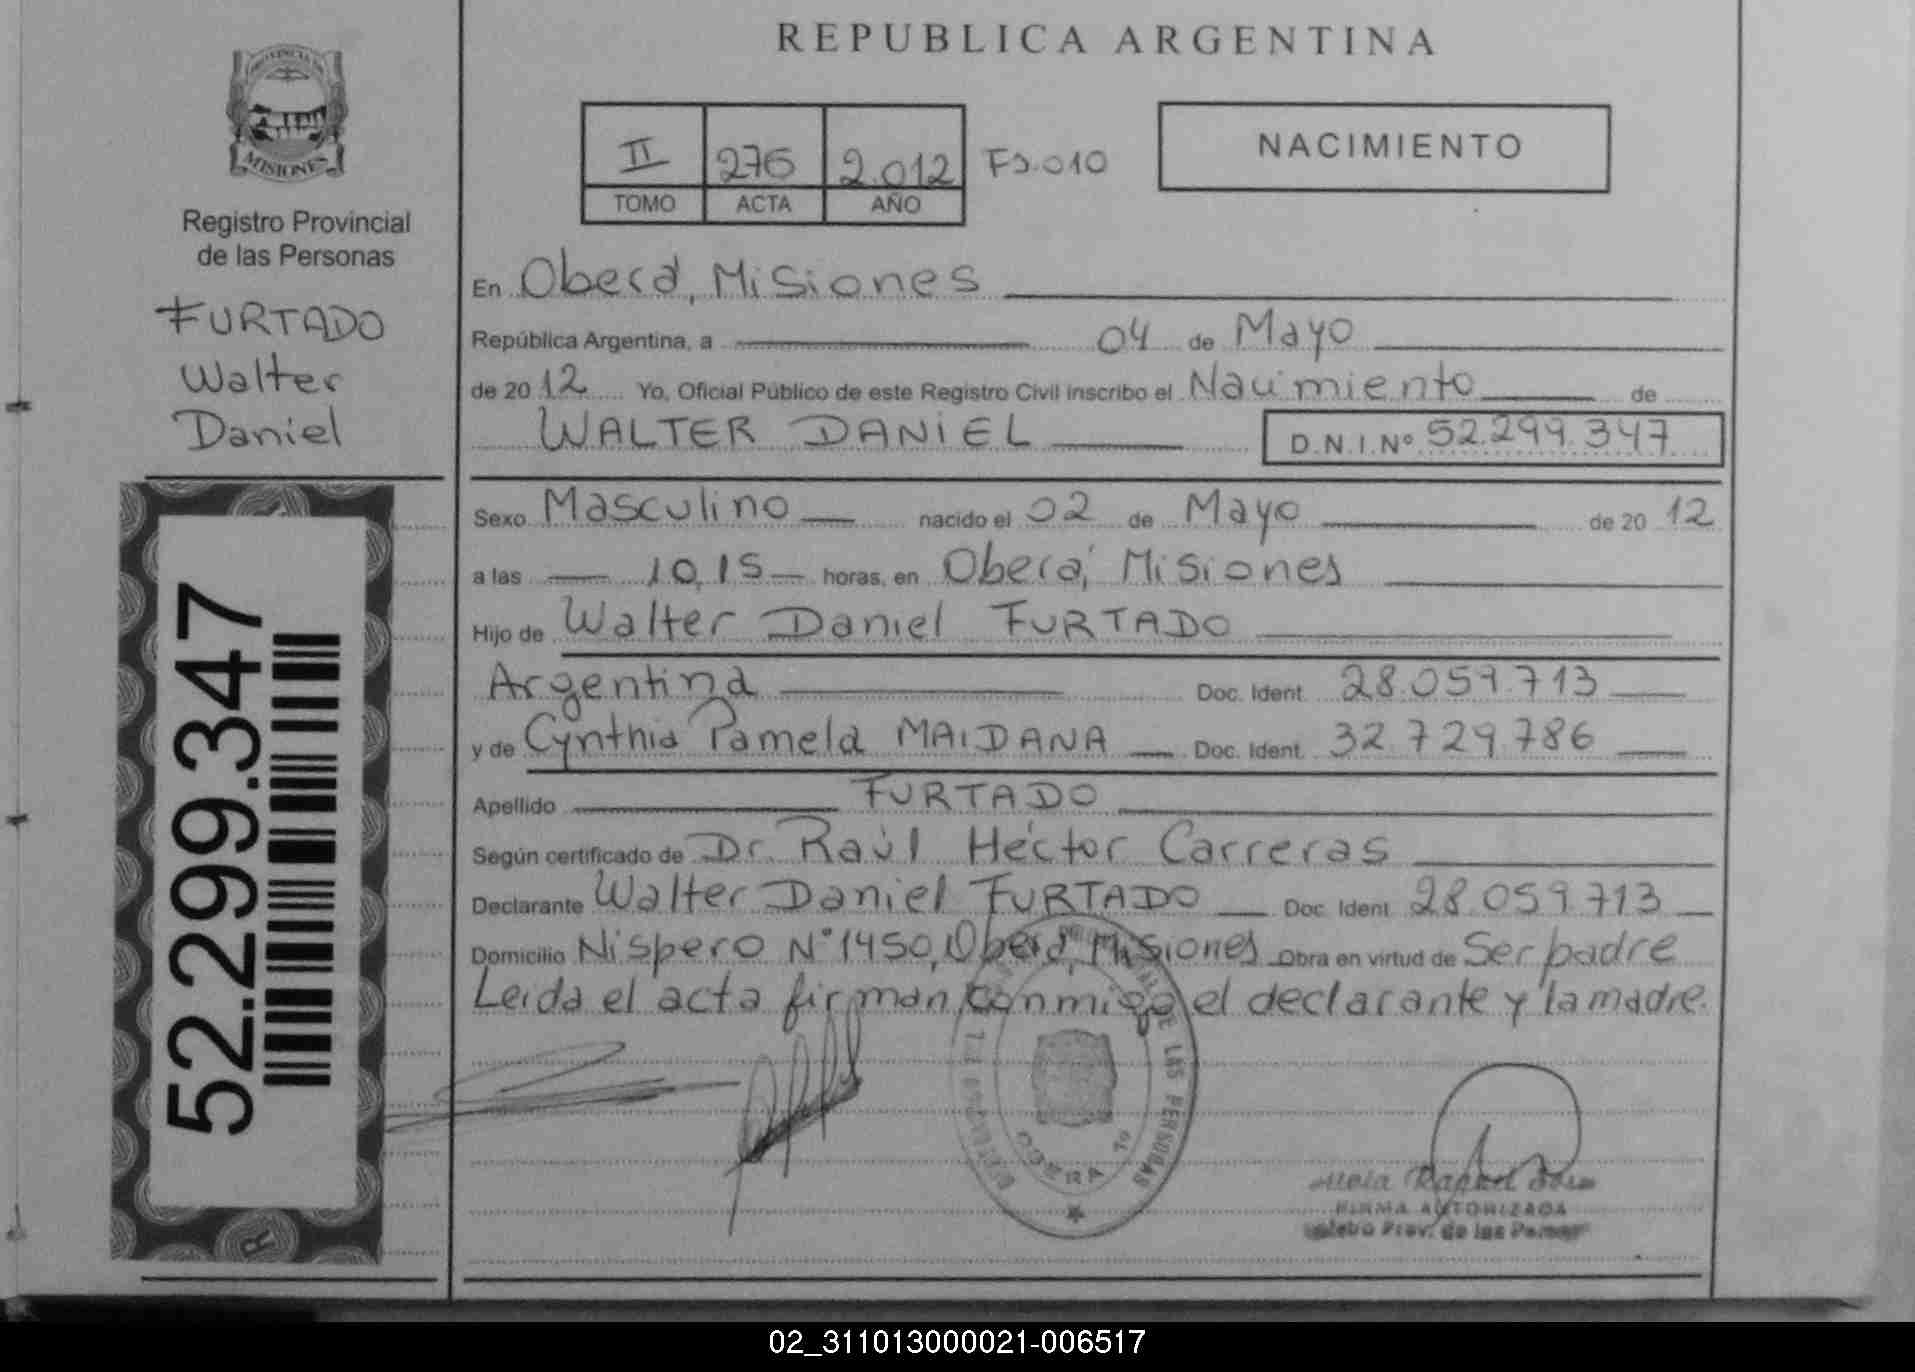 REPUBLICA ARGENTINA
PROVINCIA DE
MISIONES
Registro Provincial
de las Personas
FURTADO
Walter
Daniel
52.299.347
R
II 276 2.012 Fº.010
TOMO ACTA AÑO
NACIMIENTO
En Oberá, Misiones
República Argentina, a 04 de Mayo
de 2012 Yo, Oficial Público de este Registro Civil inscribo el Nacimiento de
WALTER DANIEL D.N.I.Nº 52.299.347
Sexo Masculino nacido el 02 de Mayo de 2012
a las 10,15 horas, en Oberá, Misiones
Hijo de Walter Daniel FURTADO
Argentina Doc. Ident. 28.059.713
y de Cynthia Pamela MAIDANA Doc. Ident. 32.729.786
Apellido FURTADO
Según certificado de Dr. Raúl Héctor Carreras
Declarante Walter Daniel FURTADO Doc. Ident. 28.059.713
Domicilio Nispero N°1450, Oberá, Misiones Obra en virtud de Ser padre
Leída el acta firman conmigo el declarante y la madre.
DE LAS PERSONAS
OBERA
FIRMA AUTORIZADA
Prov. de las
02_311013000021-006517